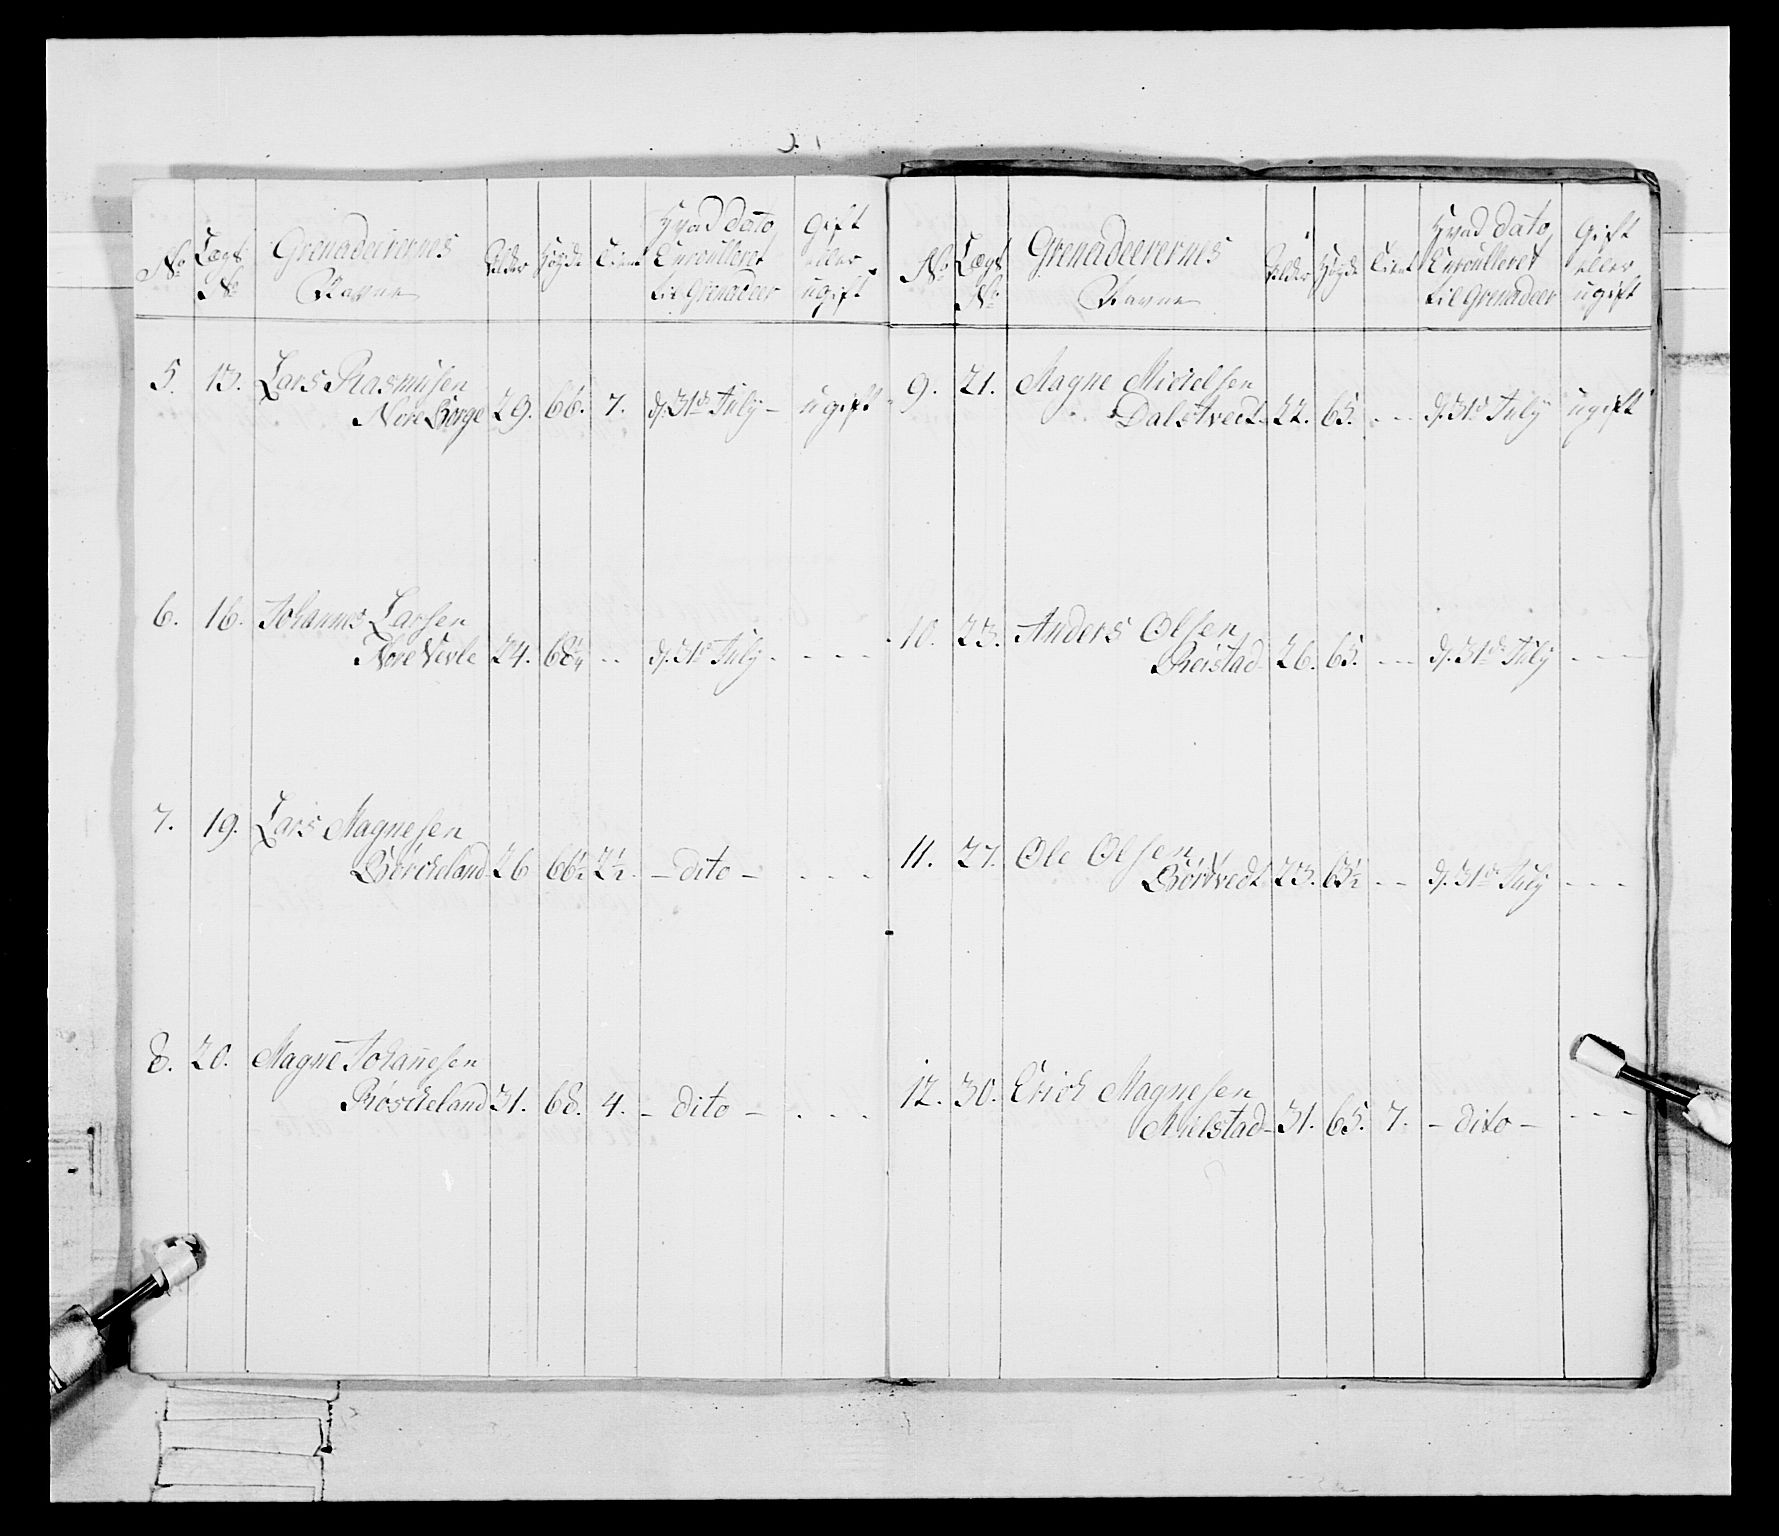 No Lægs No Grenadeerernes Navne Alder Høyde Tient Hvad Dato Enroulleret til Grenadeer Gift eller ugift
5. 13. Lars Rasmusen
Nore Borge 29. 66. 7. d. 31te July - ugift
6. 16. Johannes Larsen
Nore Nevle 24. 68 1/4 - - d. 31te July - - - -
7. 19. Lars Magnesen
Börckeland 26 66 1/2 2 1/2. - dito - - - -
8. 20. Magne Johan̄esen
Röseckeland 31. 68. 4. - dito - - - -
No Lægs No Grenadeerernes Navne Alder Høyde Tient Hvad Dato Enroulleret til Grenadeer Gift eller ugift
9. 21. Magne Mickelsen
Dalstvedt 22. 65. - - - d. 31te July ugift
10. 23. Anders Olsen
Reistad 26. 65. - - - d. 31te July - - -
11. 27. Ole Olsen
Börtvedt 23. 65 1/2 - - d. 31te July - - -
12. 30. Erick Magnesen
Mielstad - 31. 65. 7. - dito - - - -